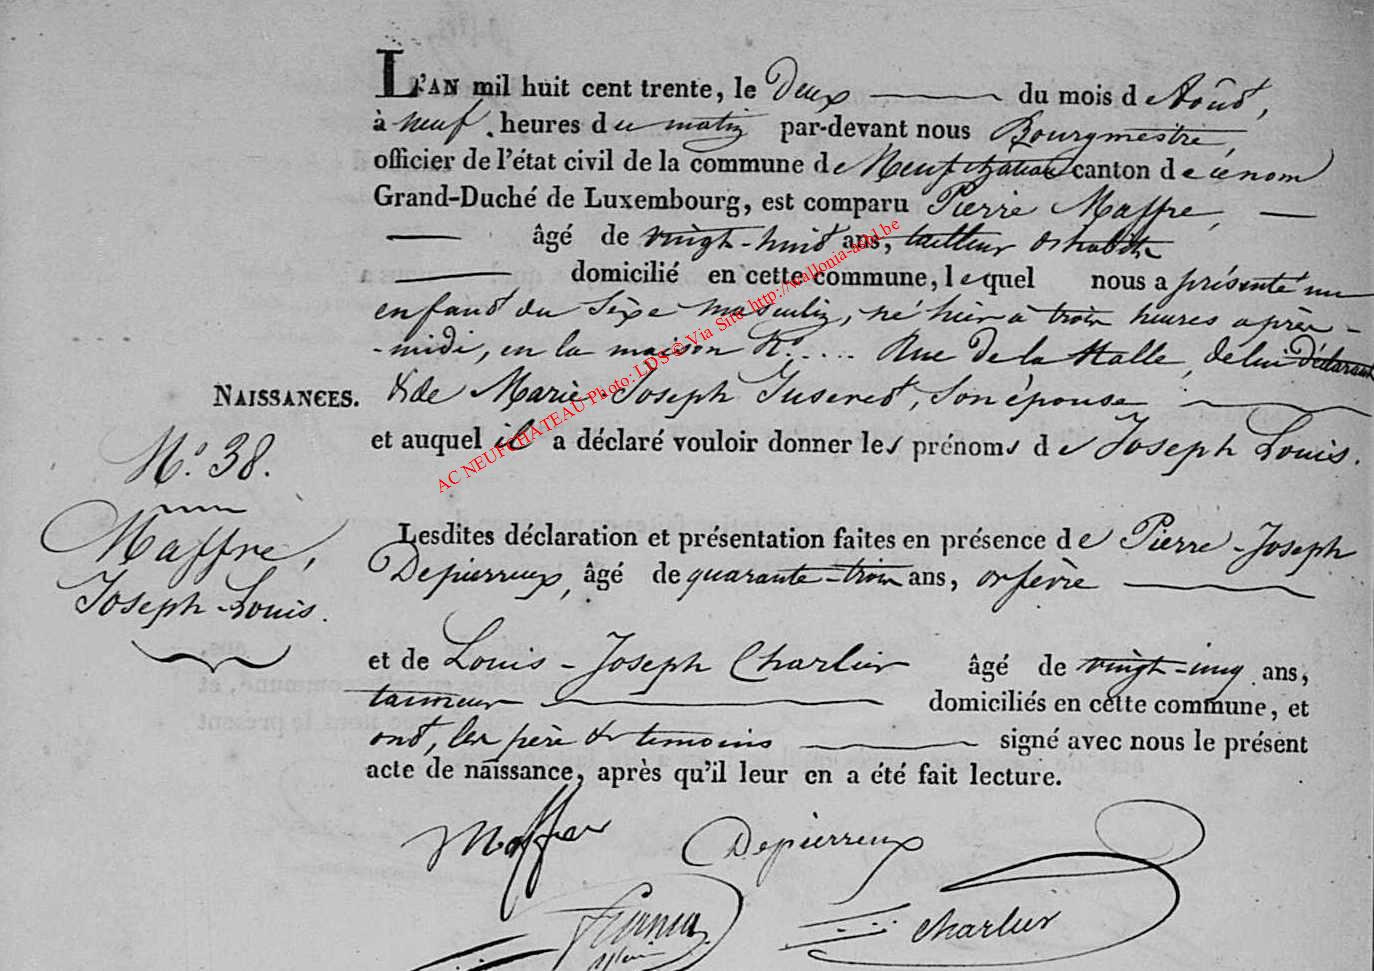 L'AN mil huit cent trente, le Deux du mois d'Août,
à neuf heures du matin par-devant nous Bourgmestre,
officier de l'état civil de la commune de Neufchateau canton de ce nom
Grand-Duché de Luxembourg, est comparu Pierre Maffre,
âgé de vingt-huit ans, tailleur d'habits
domicilié en cette commune, lequel nous a présenté un
enfant du Sexe masculin, né hier à trois heures après-
-midi, en la maison No.... Rue de la Halle, de lui Déclarant
NAISSANCES. & de Marie-Joseph Juseret, Son épouse
et auquel il a déclaré vouloir donner les prénoms de Joseph Louis.
No. 38.
Maffre,
Joseph-Louis.
Lesdites déclaration et présentation faites en présence de Pierre-Joseph
Depierreux, âgé de quarante-trois ans, orfèvre
et de Louis-Joseph Charlier âgé de vingt-cinq ans,
tanneur domiciliés en cette commune, et
ont, les père et temoins signé avec nous le présent
acte de naissance, après qu'il leur en a été fait lecture.
Maffre Depierreux
Charlier
AC NEUFCHATEAU Photo: LDS © Via Site http://wallonia-asbl.be